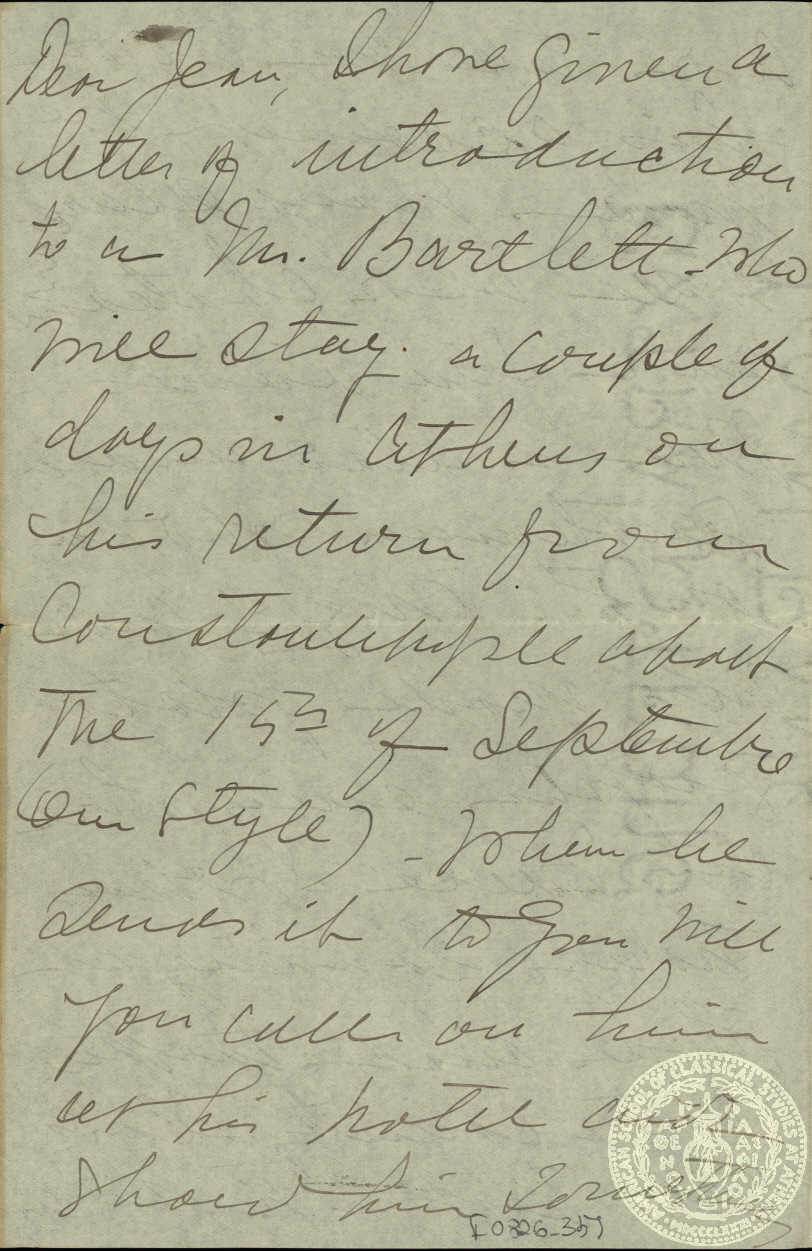 Dear Jean, I have given a
letter of introduction
to a Mr. Bartlett - Who
will stay a couple of
days in Athens on
his return from
Constantinople about
The 15th of Septembre
(our Style) - When he
sends it to you will
you call on him
at his hotel and
show him
[0326-357]
AMERICAN SCHOOL OF CLASSICAL STUDIES AT ATHENS
MDCCCLXXXI